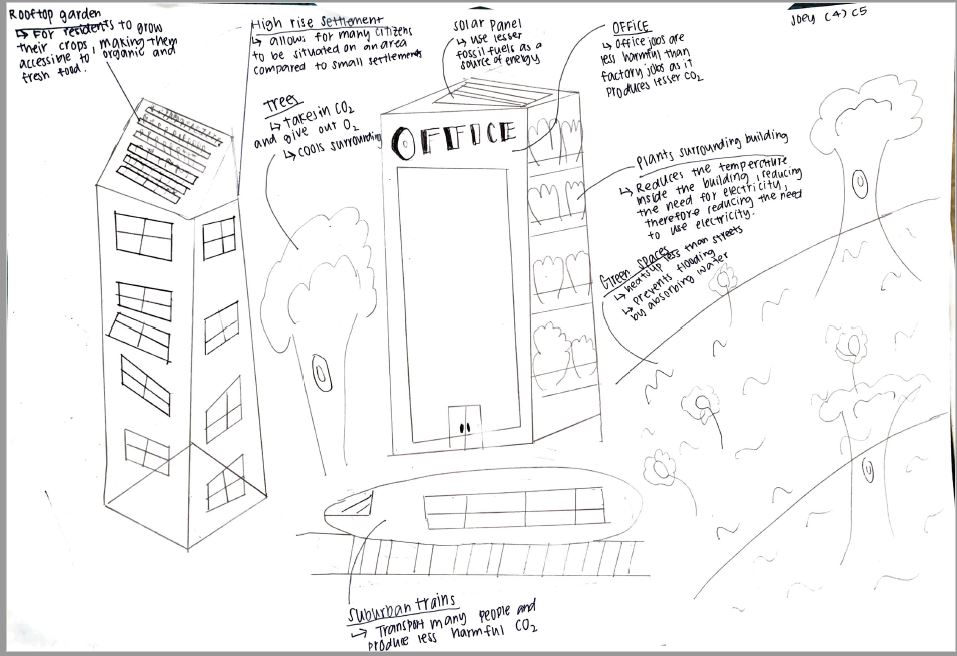 Rooftop garden
↳ For residents to grow
their crops, making them
accessible to organic and
fresh food.
High rise settlement
↳ allows for many citizens
to be situated on an area
compared to small settlements
Trees
↳ takes in CO₂
and give out O₂
↳ cools surrounding
Solar Panel
↳ use lesser
fossil fuels as a
source of energy
OFFICE
↳ office jobs are
less harmful than
factory jobs as it
produces lesser CO₂
Joey (4) C5
OFFICE
Plants surrounding building
↳ Reduces the temperature
inside the building, reducing
the need for electricity,
therefore reducing the need
to use electricity.
Green spaces
↳ heats up less than streets
↳ prevents flooding
by absorbing water
Suburban trains
↳ Transport many people and
produce less harmful CO₂